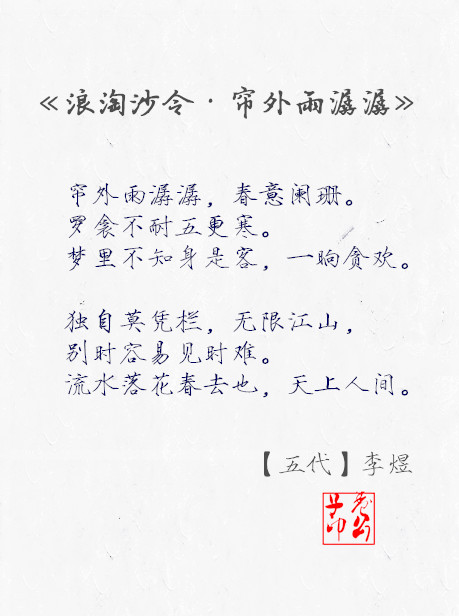 《浪淘沙令·帘外雨潺潺》
帘外雨潺潺，春意阑珊。
罗衾不耐五更寒。
梦里不知身是客，一晌贪欢。
独自莫凭栏，无限江山，
别时容易见时难。
流水落花春去也，天上人间。
【五代】李煜